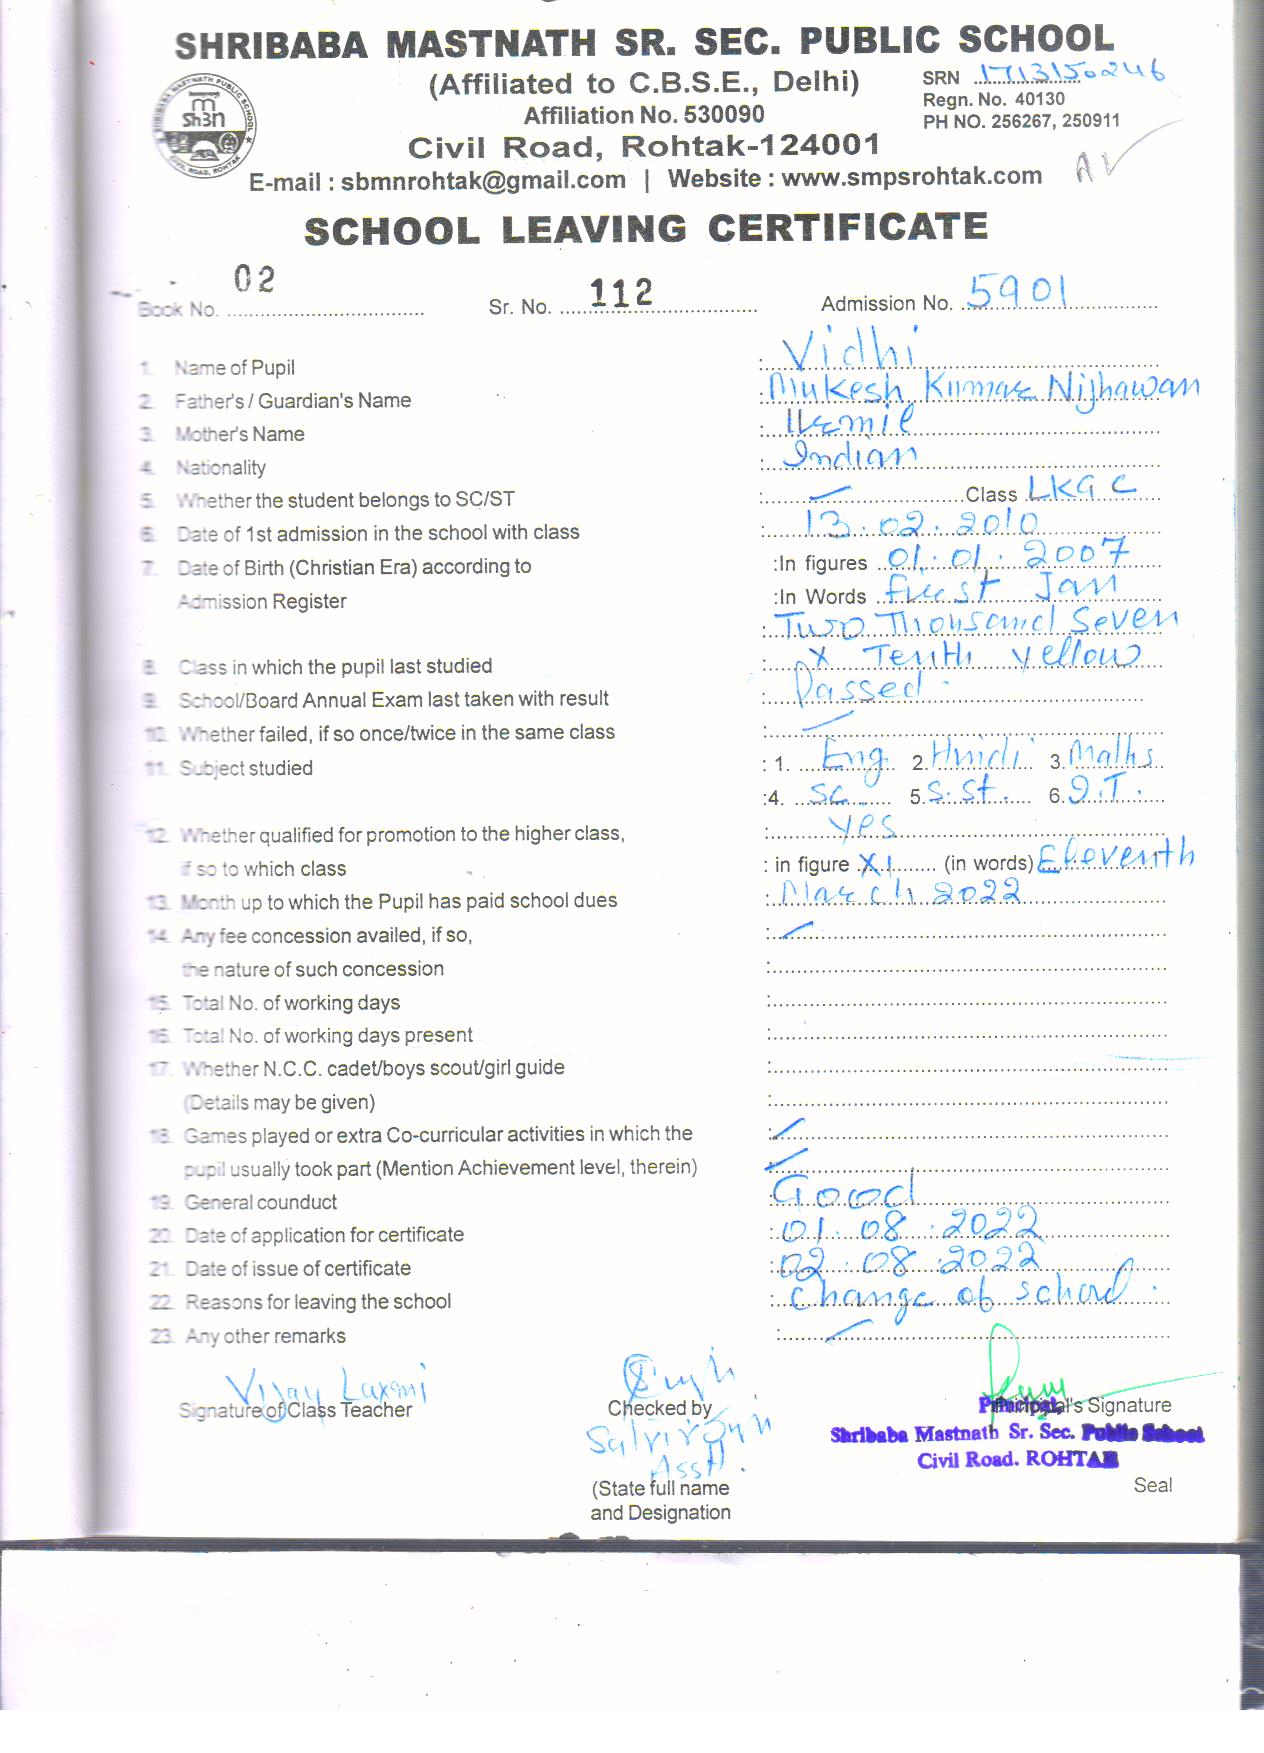 SHRIBABA MASTNATH SR. SEC. PUBLIC SCHOOL
(Affiliated to C.B.S.E., Delhi)
SRN 1713150246
Affiliation No. 530090
Regn. No. 40130
PH NO. 256267, 250911
Civil Road, Rohtak-124001
E-mail : sbmnrohtak@gmail.com | Website : www.smpsrohtak.com
SCHOOL LEAVING CERTIFICATE
Book No. 02 Sr. No. 112 Admission No. 5901
1. Name of Pupil : Vidhi
2. Father's / Guardian's Name : Mukesh Kumar Nijhawan
3. Mother's Name :
4. Nationality : Indian
5. Whether the student belongs to SC/ST : Class LKG C
6. Date of 1st admission in the school with class : 13.02.2010
7. Date of Birth (Christian Era) according to :In figures 01.01.2007
Admission Register :In Words First Jan
: Two Thousand Seven
8. Class in which the pupil last studied : X Tenth Yellow
9. School/Board Annual Exam last taken with result : Passed.
10. Whether failed, if so once/twice in the same class :
11. Subject studied : 1. Eng. 2. Hindi 3. Maths
:4. Sc. 5. S.St. 6. I.T.
12. Whether qualified for promotion to the higher class, : Yes
if so to which class : in figure XI (in words) Eleventh
13. Month up to which the Pupil has paid school dues : March 2022
14. Any fee concession availed, if so, :
the nature of such concession :
15. Total No. of working days :
16. Total No. of working days present :
17. Whether N.C.C. cadet/boys scout/girl guide :
(Details may be given) :
18. Games played or extra Co-curricular activities in which the :
pupil usually took part (Mention Achievement level, therein) :
19. General counduct : Good
20. Date of application for certificate : 01.08.2022
21. Date of issue of certificate : 02.08.2022
22. Reasons for leaving the school : Change of school.
23. Any other remarks :
Vijay Laxmi
Signature of Class Teacher Checked by Principal's Signature
Shribaba Mastnath Sr. Sec. Public School
Civil Road. ROHTAK
Asst.
(State full name Seal
and Designation